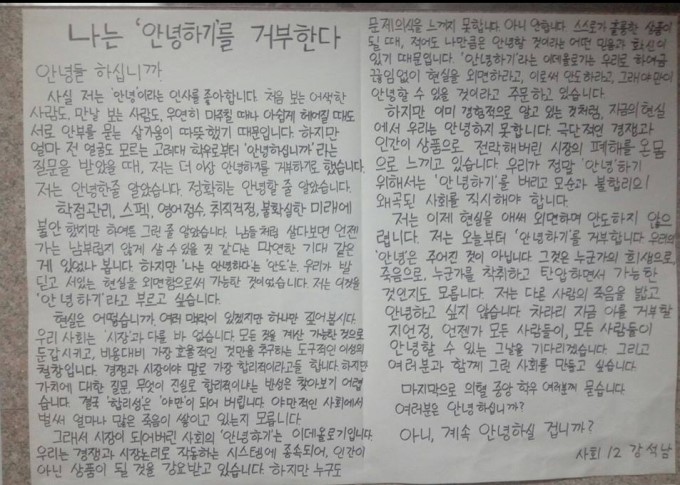 나는 '안녕하기'를 거부한다
안녕들 하십니까
사실 저는 '안녕'이라는 인사를 좋아합니다. 처음 보는 어색한
사람도, 만날 보는 사람도, 우연히 마주칠 때나 아쉽게 헤어질 때도
서로 안부를 묻는 살가움이 따뜻했기 때문입니다. 하지만
얼마 전 얼굴도 모르는 고려대 학우로부터 '안녕하십니까'라는
질문을 받았을 때, 저는 더 이상 안녕하기를 거부하기로 했습니다.
저는 안녕한줄 알았습니다. 정확히는 안녕할 줄 알았습니다.
학점관리, 스펙, 영어점수, 취직걱정, 불확실한 미래에
불안 했지만 하여튼 그런 줄 알았습니다. 남들처럼 살다보면 언젠
가는 남부럽지 않게 살 수 있을 것 같다는 막연한 기대 같은
게 있었나 봅니다. 하지만 '나는 안녕하다'는 '안도'는, 우리가 발
딛고 서있는 현실을 외면함으로써 가능한 것이었습니다. 저는 이것을
'안녕하기'라고 부르고 싶습니다.
현실은 어떻습니까 여러 매락이 있겠지만 하나만 짚어봅시다.
우리 사회는 '시장'과 다를 바 없습니다. 모든 것을 계산 가능한 것으로
둔갑시키고, 비용대비 가장 효율적인 것만을 추구하는 도구적인 이성의
철창입니다. 경쟁과 시장이야 말로 가장 합리적이라고들 합니다. 하지만
가치에 대한 질문, 무엇이 진실로 합리적이냐는 반성은 찾아보기 어렵
습니다. 결국 '합리성'은 '야만'이 되어 버립니다. 야만적인 사회에서
벌써 얼마나 많은 죽음이 쌓이고 있는지 모릅니다.
그래서 시장이 되어버린 사회의 '안녕하기'는 이데올로기입니다.
우리는 경쟁과 시장논리로 작동하는 시스템에 종속되어, 인간이
아닌 상품이 될 것을 강요받고 있습니다. 하지만 누구도
문제의식을 느끼지 못합니다. 아니 안합니다. 스스로가 훌륭한 상품이
될 때, 적어도 나만큼은 안녕할 것이라는 어떤 믿음과 확신이
있기 때문입니다. '안녕하기'라는 이데올로기는 우리로 하여금
끊임없이 현실을 외면하라고, 이로써 안도하라고, 그래야만이
안녕할 수 있을 것이라고 주문하고 있습니다.
하지만 이미 경험적으로 알고 있는 것처럼, 지금의 현실
에서 우리는 안녕하지 못합니다. 극단적인 경쟁과
인간이 상품으로 전락해버린 시장의 폐해를 온몸
으로 느끼고 있습니다. 우리가 정말 '안녕'하기
위해서는 '안녕하기'를 버리고 모순과 불합리의
왜곡된 사회를 직시해야 합니다.
저는 이제 현실을 애써 외면하며 안도하지 않으
렵니다. 저는 오늘부터 '안녕하기'를 거부합니다. 우리의
'안녕'은 주어진 것이 아닙니다. 그것은 누군가의 희생으로
죽음으로, 누군가를 착취하고 탄압하면서 가능한
것인지도 모릅니다. 저는 다른 사람의 죽음을 밟고
안녕하고 싶지 않습니다. 차라리 지금 이를 거부할
지언정, 언젠가 모든 사람들이, 모든 사람들이
안녕할 수 있는 그날을 기다리겠습니다. 그리고
여러분과 함께 그런 사회를 만들고 싶습니다.
마지막으로 의혈 중앙 학우 여러분께 묻습니다.
여러분은 안녕하십니까?
아니, 계속 안녕하실 겁니까?
사회 12 강석남